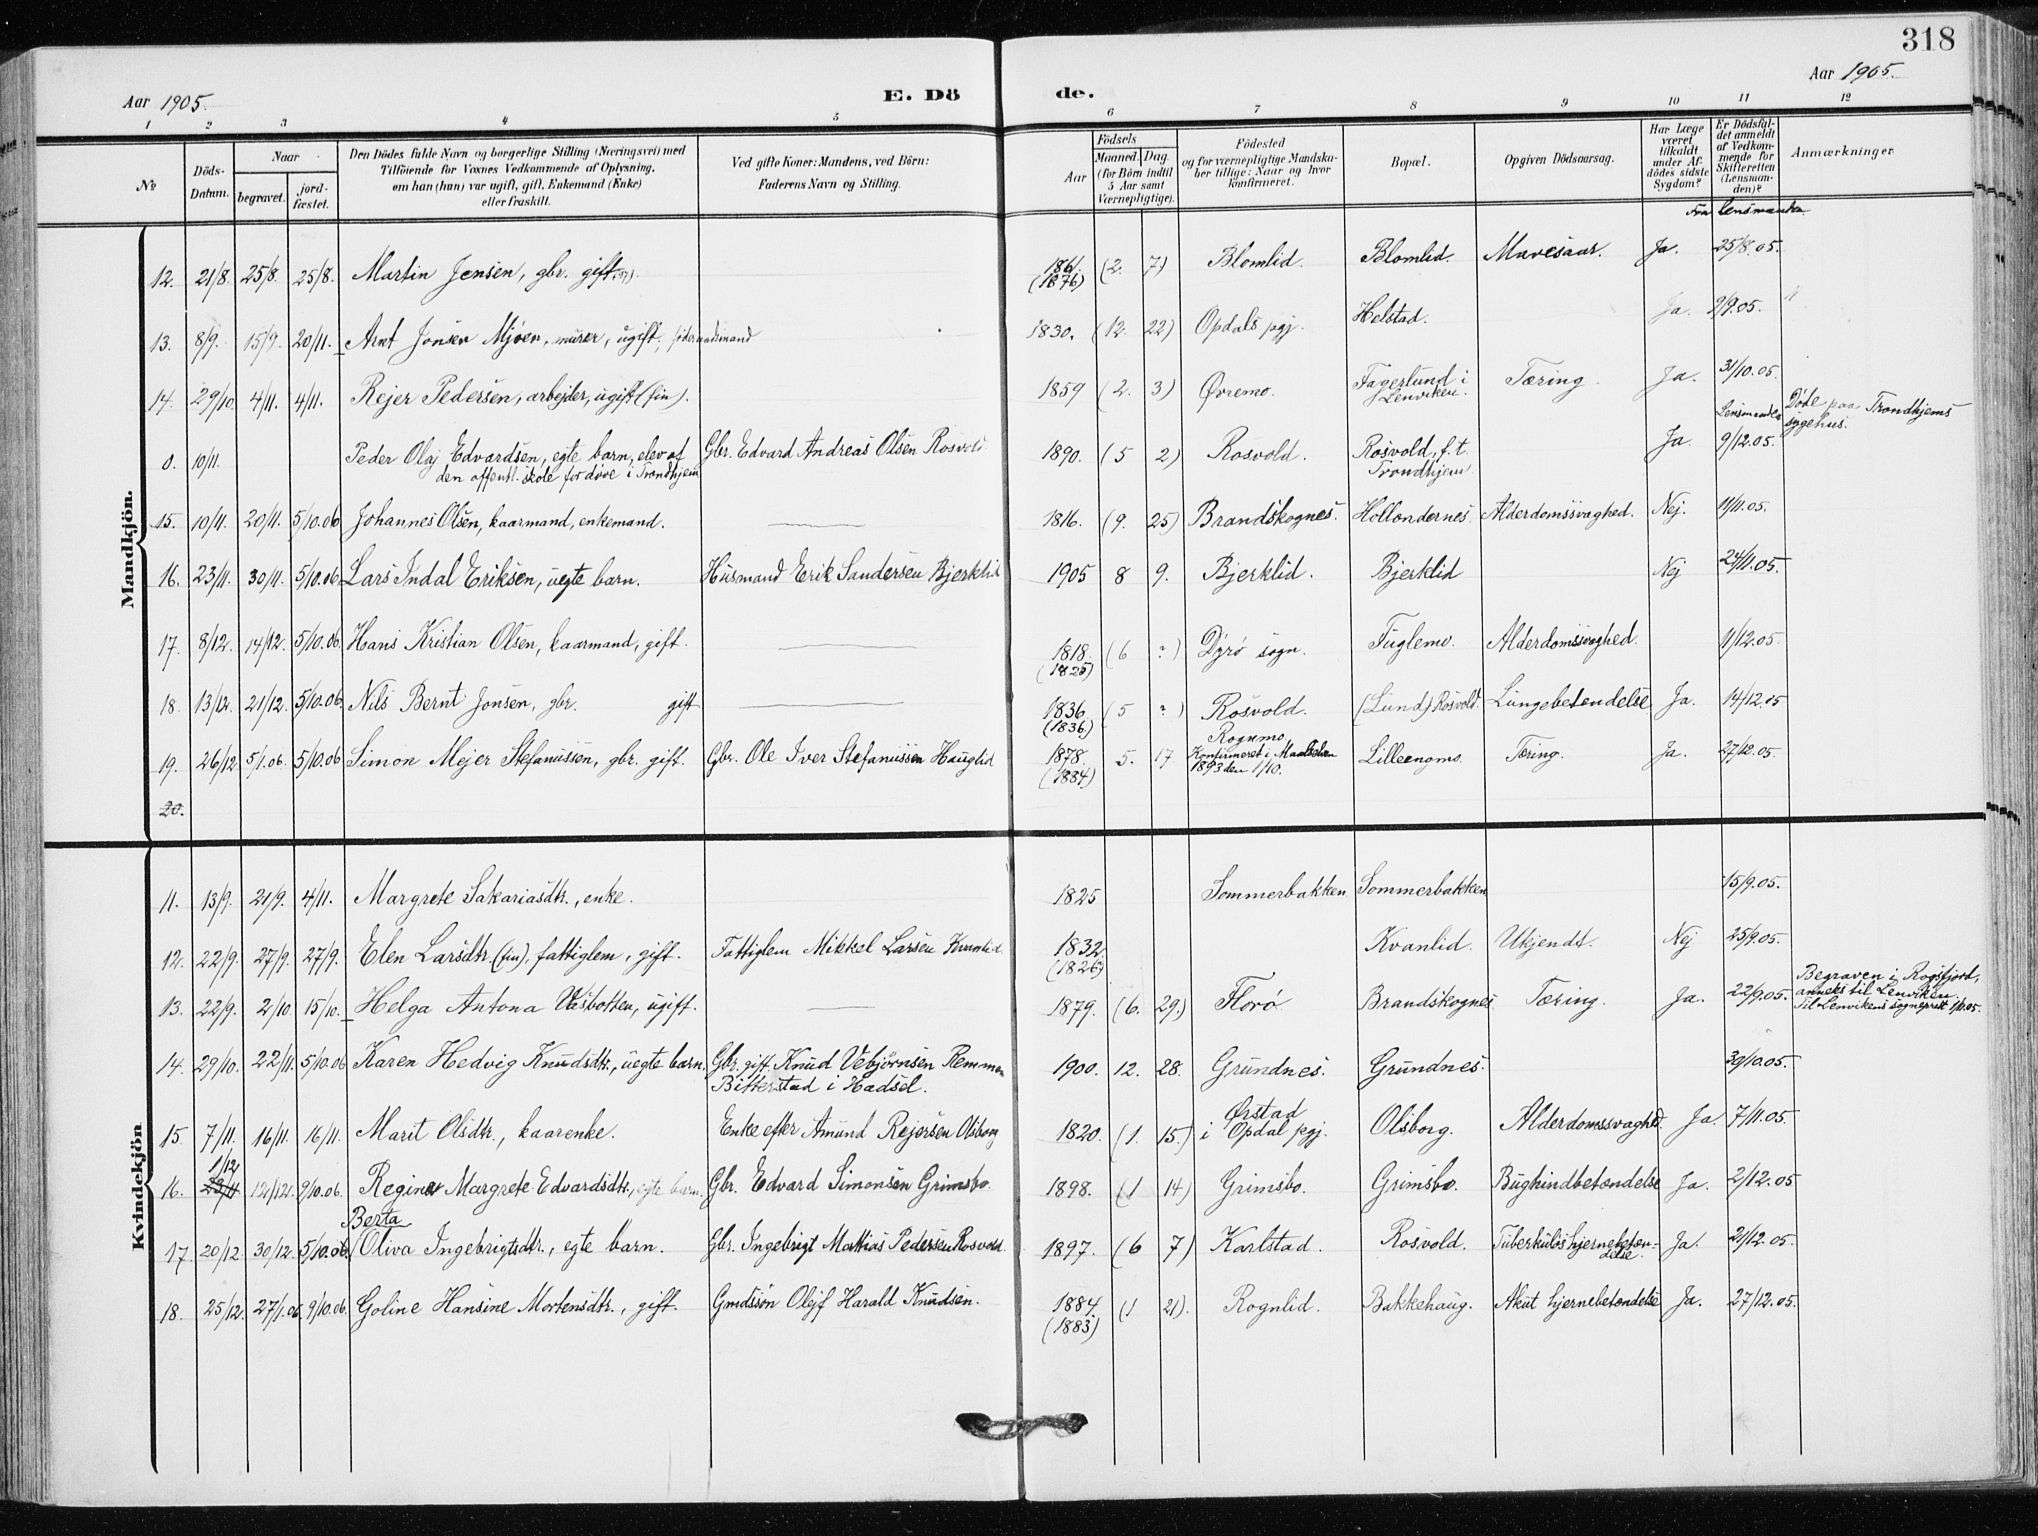 318
Aar 1905.
E. Dö
de.
Aar 1905.
1 2 3 4 5 6 7 8 9 10 11 12
№
Döds-Datum.
Naar
begravet.
jord-fæstet.
Den Dödes fulde Navn og borgerlige Stilling (Næringsvei) med
Tilföiende for Voxnes Vedkommende af Oplysning,
om han (hun) var ugift, gift, Enkemand (Enke)
eller fraskilt.
Ved gifte Koner: Mandens, ved Börn:
Faderens Navn og Stilling.
Födsels
Aar
Maaned. Dag.
(for Börn indtil
5 Aar samt
Værnepligtige).
Födested
og for værnepligtige Mandska-
ber tillige: Naar og hvor
konfirmeret.
Bopæl.
Opgiven Dödsaarsag.
Har Læge
været
tilkaldt
under Af-
dödes sidste
Sygdom?
Er Dödsfal-
det anmeldt
af Vedkom-
mende for
Skifteretten
(Lensman-
den)?
Anmærkninger
Fra lensmanden
Mandkjön.
12. 21/8. 25/8. 25/8. Martin Jensen, gbr. gift 1861. (1876) (2. 7) Blomlid. Blomlid. Mavesaar. Ja. 25/8.05.
13. 8/9. 15/9. 20/11. Arnt Jonsen Mjøen, murer, ugift, 1830. (12. 22) Opdals pgj. Helstad. Ja. 9/9.05.
14. 29/10. 4/11. 4/11. Rejer Pedersen, arbejder, ugift (fin). 1859 (2. 3) Øvremo. Fagerlund i Lenviken. Tæring. Ja. 31/10.05.
0. 10/11. Peder Olaj Edvardsen, egte barn, elev af den offentl. skole for døve i Trondhjem Gbr. Edvard Andreas Olsen Rosvold 1890. (5 2) Rosvold. Rosvold, f.t. Trondhjem Ja. Lensmanden 9/12.05. Døde paa Trondhjems sygehus.
15. 10/11. 20/11. 5/10.06 Johannes Olsen, kaarmand, enkemand. 1816. (9. 25) Brandskognes. Hollendernes. Alderdomssvaghed. Nej. 11/11.05.
16. 23/11. 30/11. 5/10.06. Lars Indal Eriksen, uegte barn. Husmand Erik Sandersen Bjerklid 1905 8 9. Bjerklid. Bjerklid Nej 24/11.05.
17. 8/12. 14/12. 5/10.06. Hans Kristian Olsen, kaarmand, gift. 1818. (1825) (6 ?) Dyrø sogn. Fuglemo. Alderdomssvaghed. 11/12.05.
18. 13/12. 21/12. 5/10.06. Nils Bernt Jonsen, gbr. gift 1836 (1836.) (5 ?) Rosvold. (Lund) Rosvold. Lungebetendelse Ja. 14/12.05
19. 26/12 5/1.06. 5/10.06 Simon Mejer Stefanussen, gbr. gift. Gbr. Ole Iver Stefanussen Hauglid 1878. (1884) 5. 17 Rognmo. Konfirmeret i Maalselven 1893 den 1/10. Lilleengmo. Tæring. Ja. 27/12.05
20.
Kvindekjön
11. 13/9. 21/9. 4/11. Margrete Sakariasdtr., enke. 1825 Sommerbakken Sommerbakken 15/9.05.
12. 22/9. 27/9. 27/9. Elen Larsdtr. (fin), fattiglem, gift. Fattiglem Mikkel Larsen Kvanlid 1832. (1826) Kvanlid. Ukjendt. Nej 25/9.05.
13. 22/9. 2/10 15/10. Helga Antona Vesbotten, ugift. 1879. (6. 29.) Florø Brandskognes Tæring. Ja. 22/9.05. Begraven i Rossfjord, anneks til Lenviken. Til Lenvikens sogneprest 1/10.05.
14. 29/10. 22/11. 5/10.06 Karen Hedvig Knudsdtr., uegte barn. Gbr. gift Knud Vebjørnsen Remmen Bitterstad i Hadsel. 1900. 12. 28. Grundnes. Grundnes. 30/10.05.
15. 7/11. 16/11. 16/11. Marit Olsdtr., kaarenke. Enke efter Amund Rejersen Olsborg 1820. (1. 15.) Ørstad i Opdal pgj. Olsborg. Alderdomssvaghed Ja. 7/11.05.
16. 1/12 23/11 12/12. 9/10.06. Regine Margrete Edvardsdtr., egte barn. Gbr. Edvard Simonsen Grimsbo. 1898. (1 14) Grimsbo. Grimsbo. Bughindbetændelse Ja. 2/12.05
17. 20/12. 30/12. 5/10.06. Berta Oliva Ingebrigtsdtr., egte barn. Gbr. Ingebrigt Mathias Pedersen Rosvold. 1897. (6 7) Karlstad. Rosvold. Tuberkuløs hjernebetændelse. Ja. 21/12.05.
18. 25/12. 27/1.06. 9/10.06. Goline Hansine Mortensdtr., gift. Gmdssøn Olejf Harald Knudsen. 1884 (1883) (1 21). Rognlid. Bakkehaug. Akut hjernebetendelse Ja. 27/12.05.